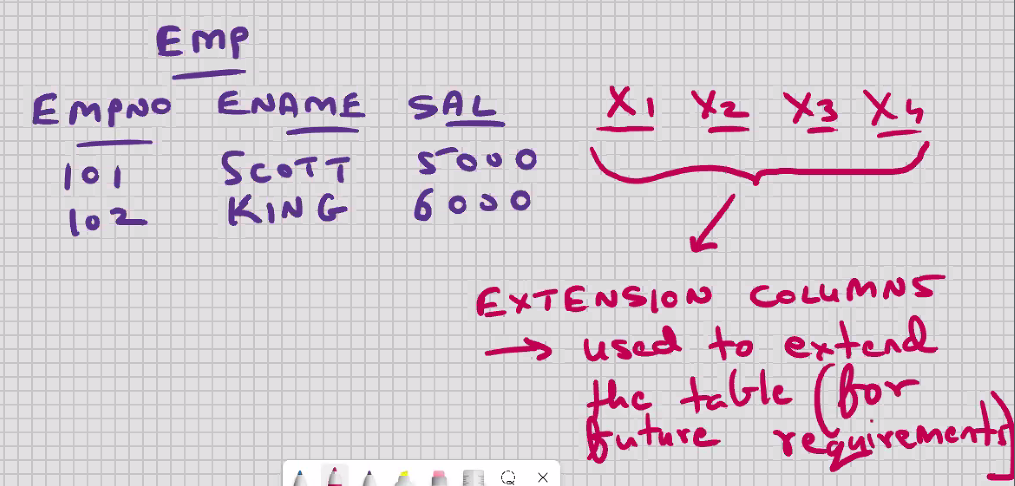 Emp
EMPNO ENAME SAL X1 X2 X3 X4
101 SCOTT 5000
102 KING 6000
EXTENSION COLUMNS
→ used to extend
the table (for
future requirements)